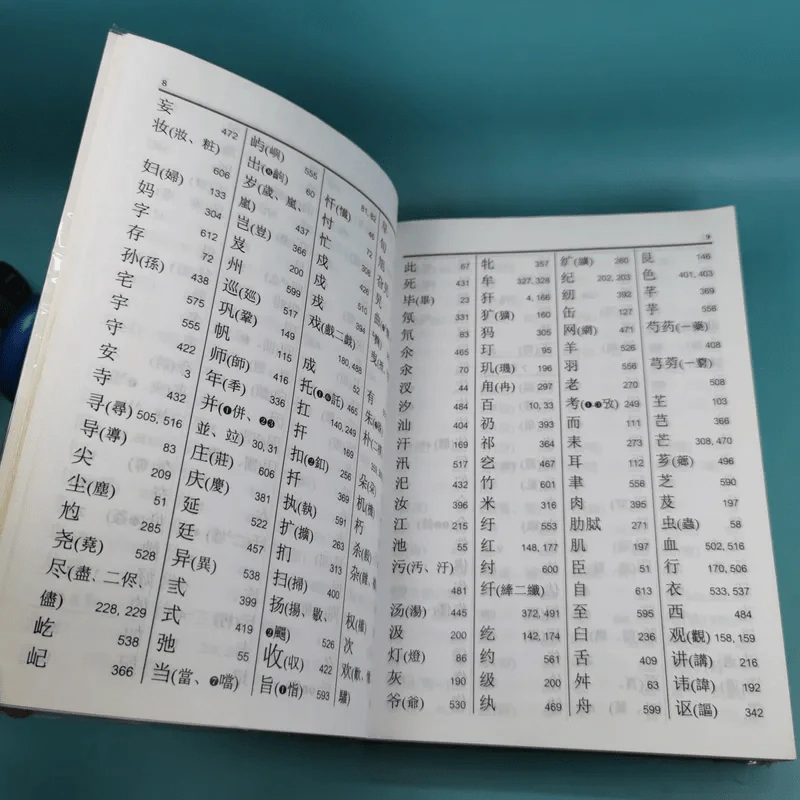 8
妄 472
妆(妝、粧) 606
妇(婦) 133
妈 304
字 612
存 72
孙(孫) 438
宅 575
宇 555
守 422
安 3
寺 432
寻(尋) 505, 516
导(導) 83
尖 209
尘(塵) 51
尥 285
尧(堯) 528
尽(盡、二侭、
儘) 228, 229
屹 538
屺 366
屿(嶼) 555
出(❽齣) 60
岁(歲、
437
岂(豈) 366
岌 200
州 599
巡(廵) 517
巩(鞏) 149
帆 115
师(師) 416
年(秊) 336
并(❶併、❷❸
並、竝) 30, 31
庄(莊) 606
庆(慶) 381
延 522
廷 457
异(異) 538
弎 399
式 419
弛 55
当(當、❼噹)
81, 82
忏(懺) 46
忖 72
忙 308
戍
戌 510
戎 394
戏(戲二戯)
180, 488
成 52
托(託) 465
扛 140, 249
扞 165
扣(❷釦) 256
扦
执(執) 591
扩(擴) 263
扪 313
扫(掃) 400
扬(揚、敭、
❷颺) 526
收(収) 422
旨(❶恉) 593
有
朱
朴
朵(朶)
机(機)
朽
杀(殺)
杂(雜
权(權)
次
欢(歡
驩)
9
此 67
死 431
毕(畢) 23
氖
氘 83
氽
汆 70
汊 44
汐 484
汕 404
汗 169
汛 517
汜
汝 396
江 215
池 55
污(汚、汙)
481
汤(湯) 445
汲 200
灯(燈) 86
灰 190
爷(爺) 530
牝 357
牟 327, 328
犴 4, 166
犷(獷) 160
犸 305
玎 95
玑(璣) 196
甪(冉) 297
百 10, 33
礽 393
祁 364
穵 467
竹 601
米 316
纡 553
红 148, 177
纣 600
纤(縴二纖)
372, 491
纥 142, 174
约 561
级 200
纨 469
纩(纊) 260
纪 202, 203
纫 392
缶 127
网(網) 471
羊 526
羽 556
老 270
考(攷) 249
而 111
耒 273
耳 112
聿 556
肉 395
肋 271
肌 197
臣 51
自 613
至 595
臼 236
舌 409
舛 63
舟 599
艮 146
色 401, 403
芊
芋 556
芍药(一藥)
408
芎䓖(一藭)
508
芏 103
芑 366
芒 308, 470
芗(薌) 496
芝 590
芨 197
虫(蟲) 58
血 502, 516
行 170, 506
衣 533, 537
西 484
观(觀) 158, 159
讲(講) 216
讳(諱) 192
讴(謳) 342